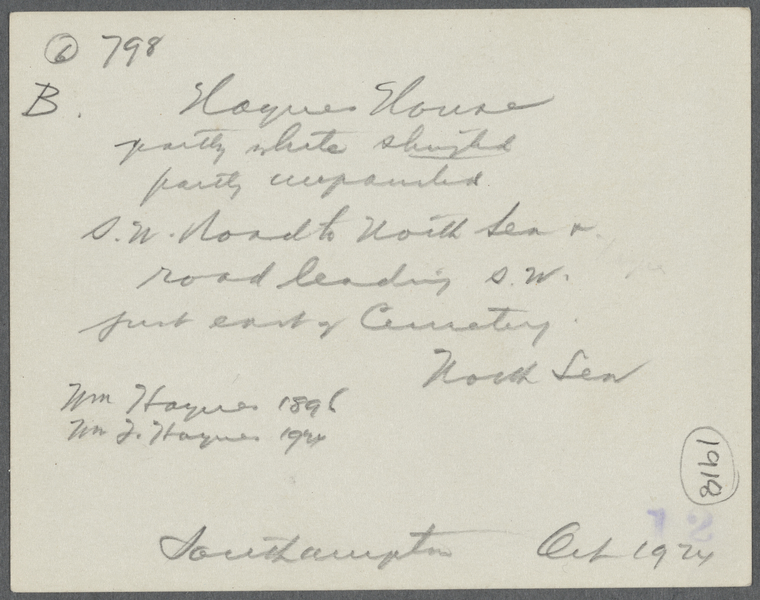 6 798
B. Haynes House
partly white shingled
partly unpainted.
S.W. Road to North Sea &
road leading S.W.
just east of Cemetery.
North Sea
Wm Haynes 1896
Wm J. Haynes 1924
1918
12
Southampton Oct 1924